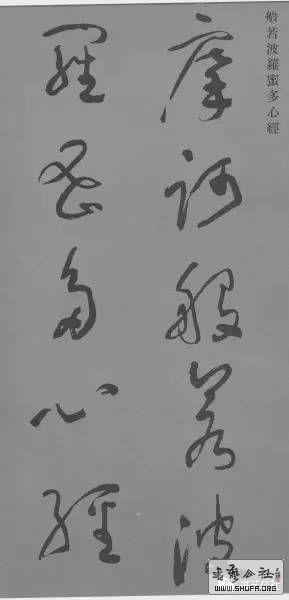 般若波羅蜜多心經
摩訶般若波
羅蜜多心經
書藝公社
WWW.SHUFA.ORG